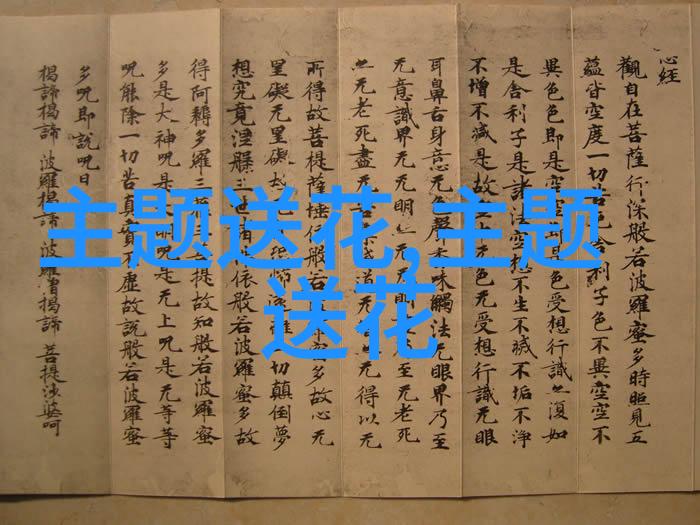 心经
觀自在菩薩行深般若波羅蜜多時照見五
蘊皆空度一切苦厄舍利子色不異空空不
異色色即是空空是色受想行識亦復如
是舍利子是諸法空想不生不滅不垢不淨
不增不減是故空中无色无受想行識无眼
耳鼻舌身意无色聲香味觸法无眼界乃至
无意識界无无明亦无无明乃至无老死
亦无老死盡无苦集滅道无亦无得以无
所得故菩提薩埵依般若波羅蜜多故心无
罣礙无罣礙故无恐怖遠離一切顛倒夢
想究竟涅槃三世諸依般若波羅蜜多故
得阿耨多羅三藐三菩提故知般若波羅蜜
多是大神呪是大明呪是无上呪是无等等
呪能除一切苦真實不虛故說般若波羅蜜
多呪即說呪曰
揭諦揭諦 波羅揭諦 波羅僧揭諦 菩提莎婆呵
主题送花,主题
送花